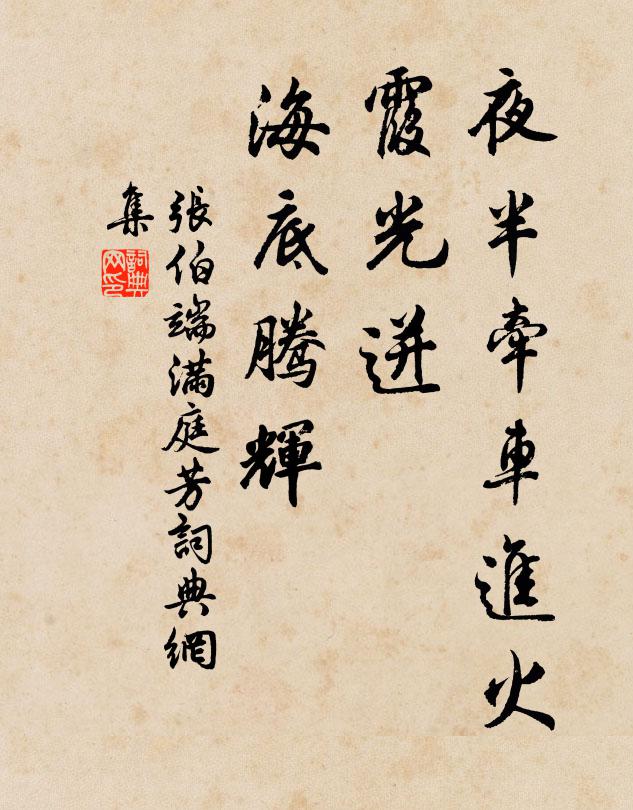 夜半牽車進火
霞光迸
海底騰輝
張伯端滿庭芳詞典網
集
詞典
网印